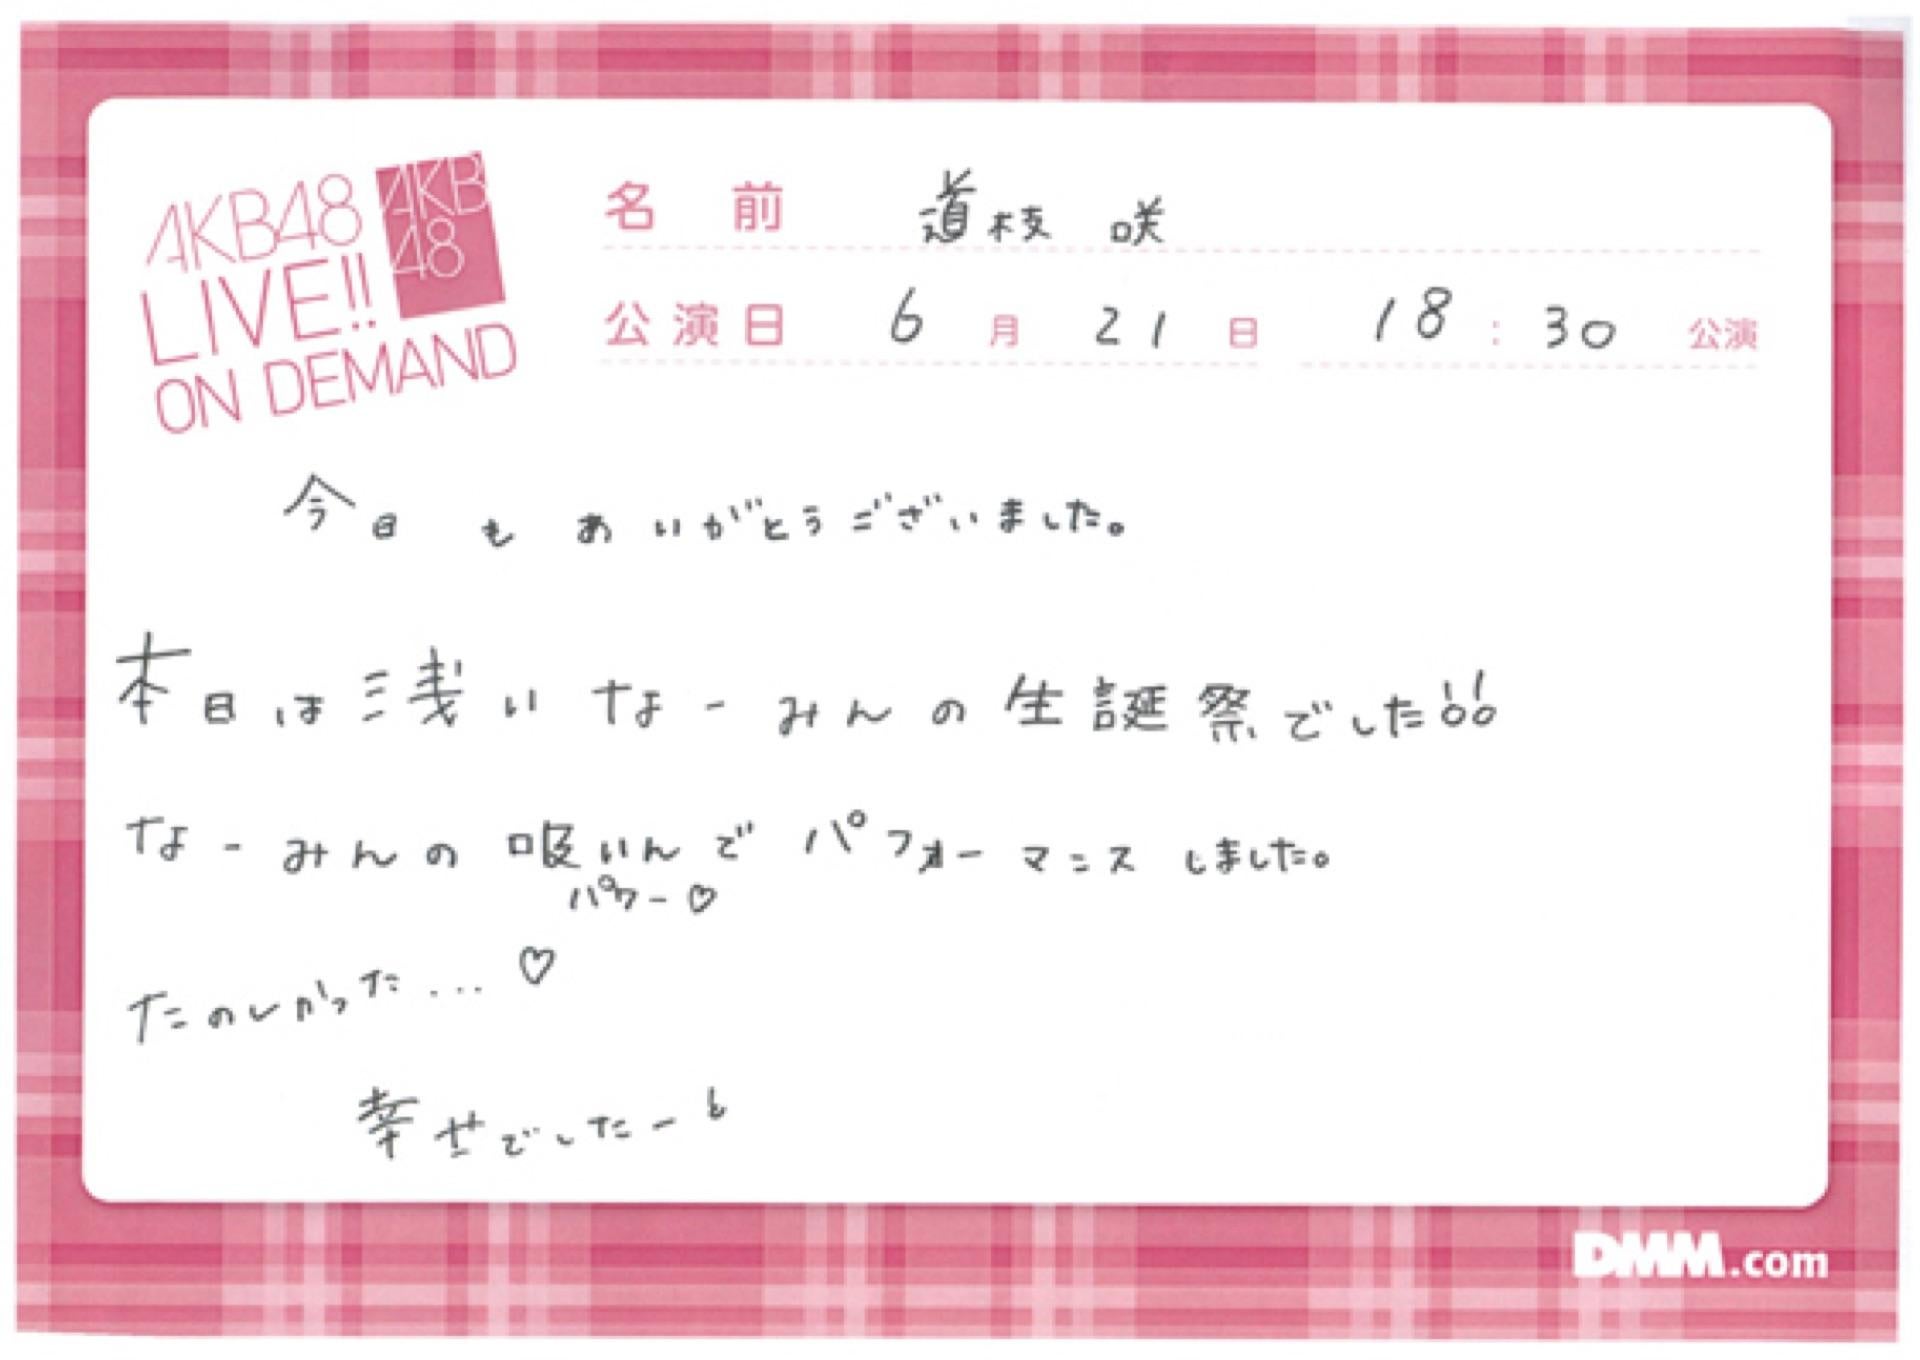 AKB48
LIVE!!
ON DEMAND
AKB
48
名前 道枝 咲
公演日 6月21日 18:30公演
今日も ありがとうございました。
本日は浅いなーみんの生誕祭でした!!
なーみんの吸いんで パフォーマンス しました。
パワー♡
たのしかった...♡
幸せでしたーと
DMM.com